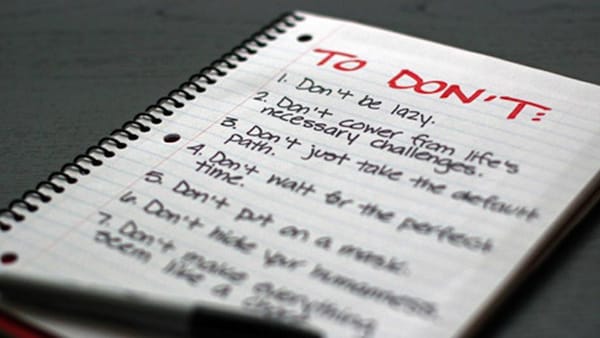 TO DON'T:
1. Don't be lazy.
2. Don't cower from life's
necessary challenges.
3. Don't just take the default
path.
4. Don't wait for the perfect
time.
5. Don't put on a mask.
6. Don't hide your humanness.
7. Don't make everything
seem like a